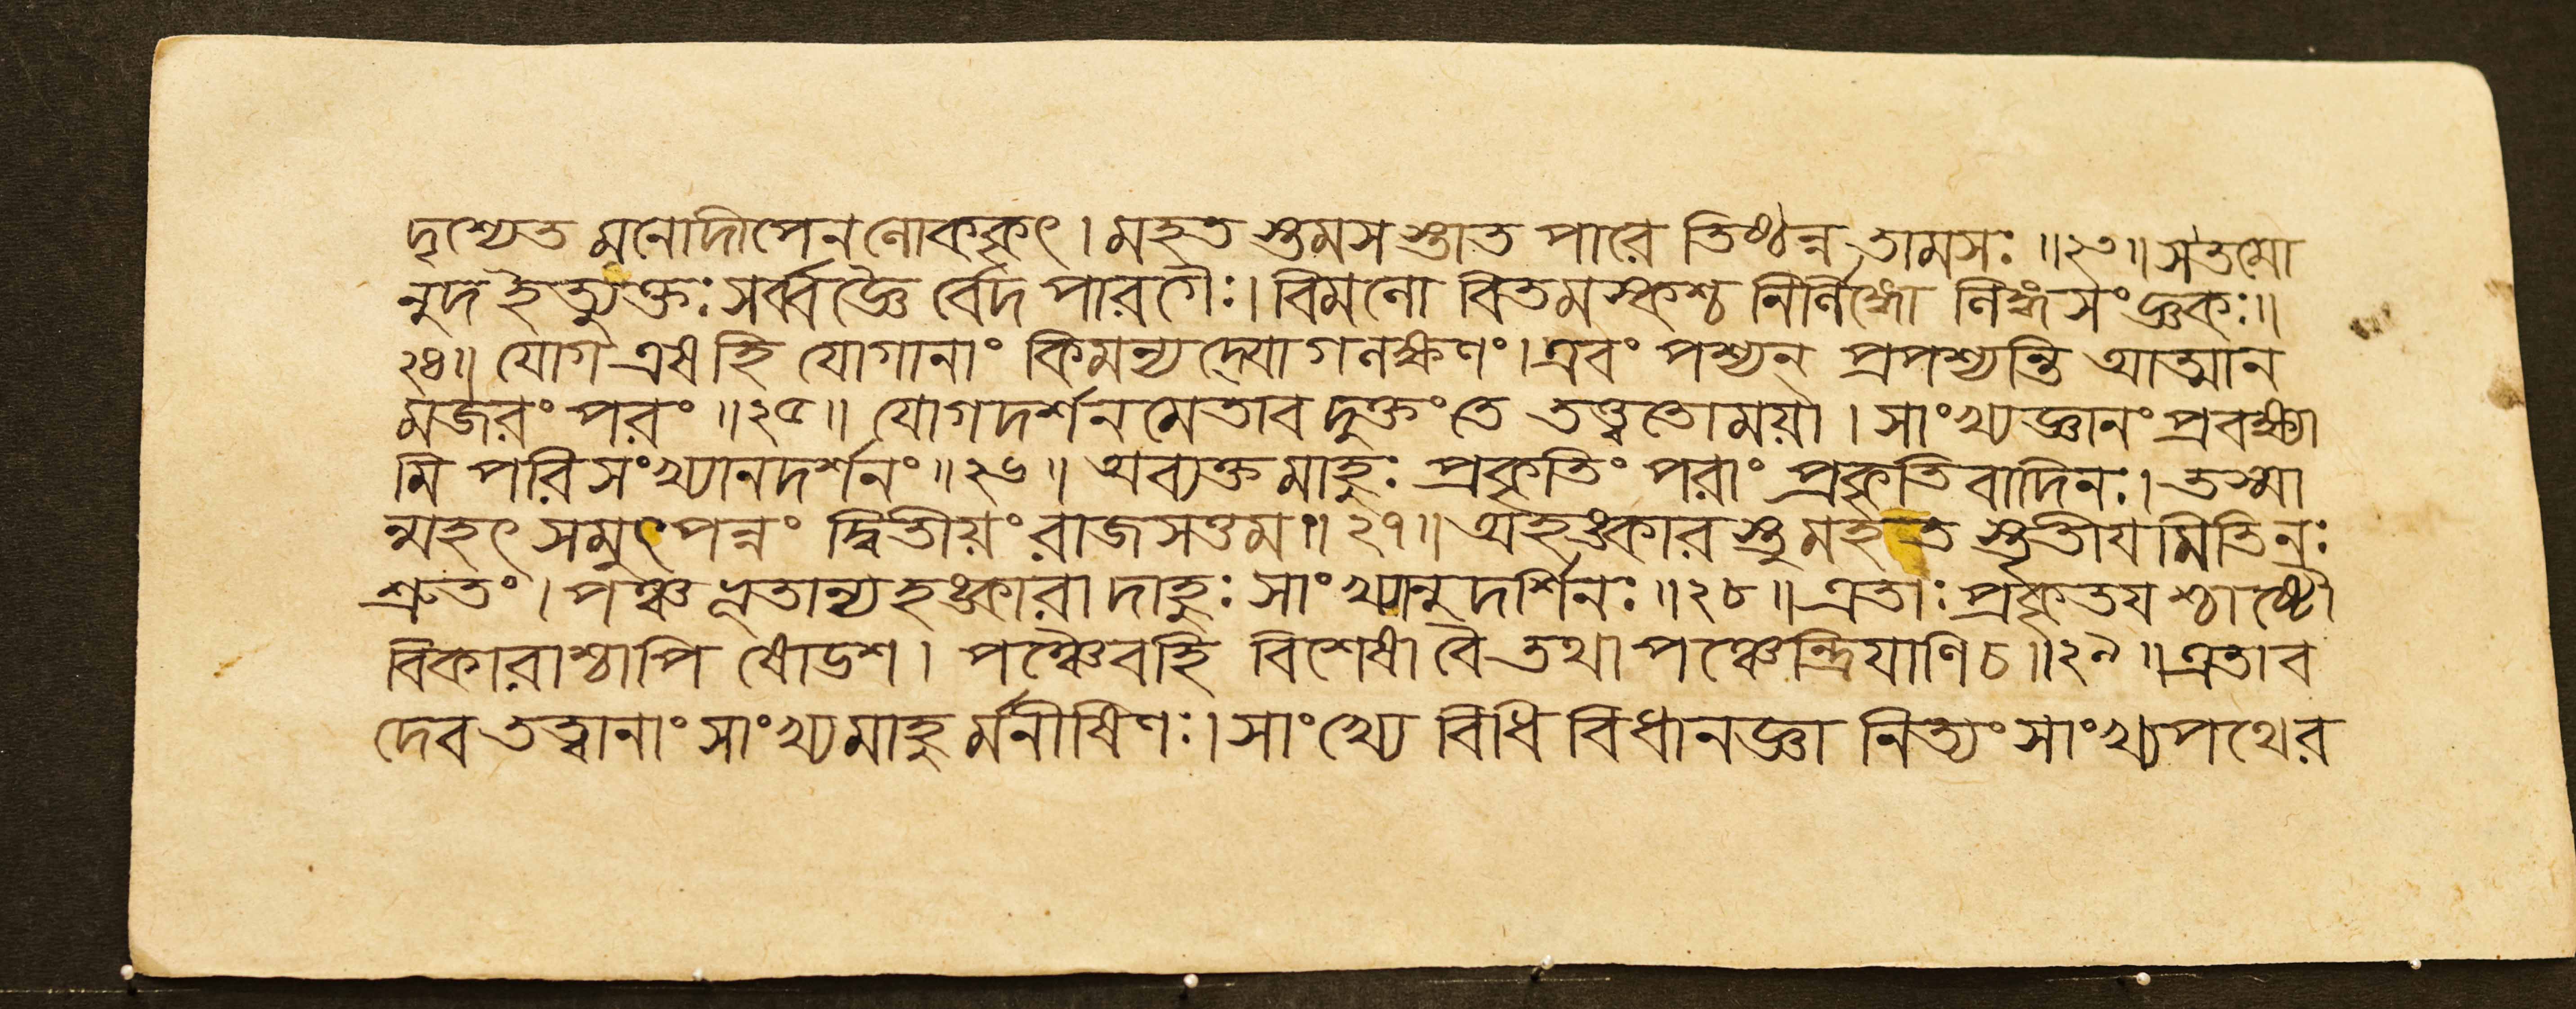 দৃশ্যেত মনোদীপেন লোককৃৎ । মহত স্তমস স্তাত পারে তিষ্ঠন্ন তামসঃ ॥২৩॥ স তমো
নুদ ইত্যুক্তঃ সর্ব্বজ্ঞৈ র্বেদ পারগৈঃ । বিমলো বিতমস্কশ্চ নির্লিঙ্গো লিঙ্গসংজ্ঞকঃ ॥
২৪॥ যোগ এষ হি যোগানাং কিমন্যদ্যোগ লক্ষণং । এবং পশ্যন্ প্রপশ্যন্তি আত্মান
মজরং পরং ॥২৫॥ যোগদর্শন মেতাব দুক্তং তে তত্ত্বতো ময়া । সাংখ্যজ্ঞানং প্রবক্ষ্যা
মি পরিসংখ্যানদর্শনং ॥২৬॥ অব্যক্ত মাহুঃ প্রকৃতিং পরাং প্রকৃতি বাদিনঃ । তস্মা
ন্মহৎ সমুৎপন্নং দ্বিতীয়ং রাজসত্তম ॥ ২৭॥ অহঙ্কার স্তু মহ ত স্তৃতীয মিতি নঃ
শ্রুতং । পঞ্চ ভূতান্য হঙ্কারা দাহুঃ সাংখ্যানুদর্শিনঃ ॥২৮॥ এতাঃ প্রকৃতয শ্চাষ্টৌ
বিকারাশ্চাপি ষোডশ । পঞ্চৈব হি বিশেষা বৈ তথা পঞ্চেন্দ্রিযাণি চ ॥২৯॥ এতাব
দেব তত্ত্বানাং সাংখ্যমাহু র্মনীষিণঃ । সাংখ্যে বিধি বিধানজ্ঞা নিত্যং সাংখ্যপথে র